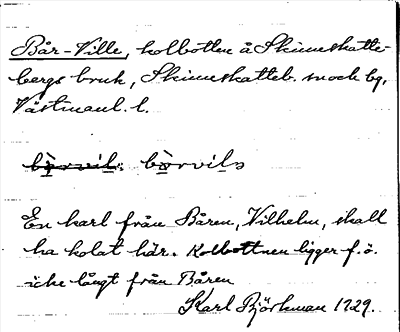 Bår-Ville, kolbotten å Skinneskatte-
bergs bruk, Skinneskatteb. sock by,
Västmanl. l.
bòrvil: bòrvils
En karl från Båren, Vilhelm, skall
ha kolat här. Kolbottnen ligger f. ö.
icke långt från Båren
Karl Björkman 1929.